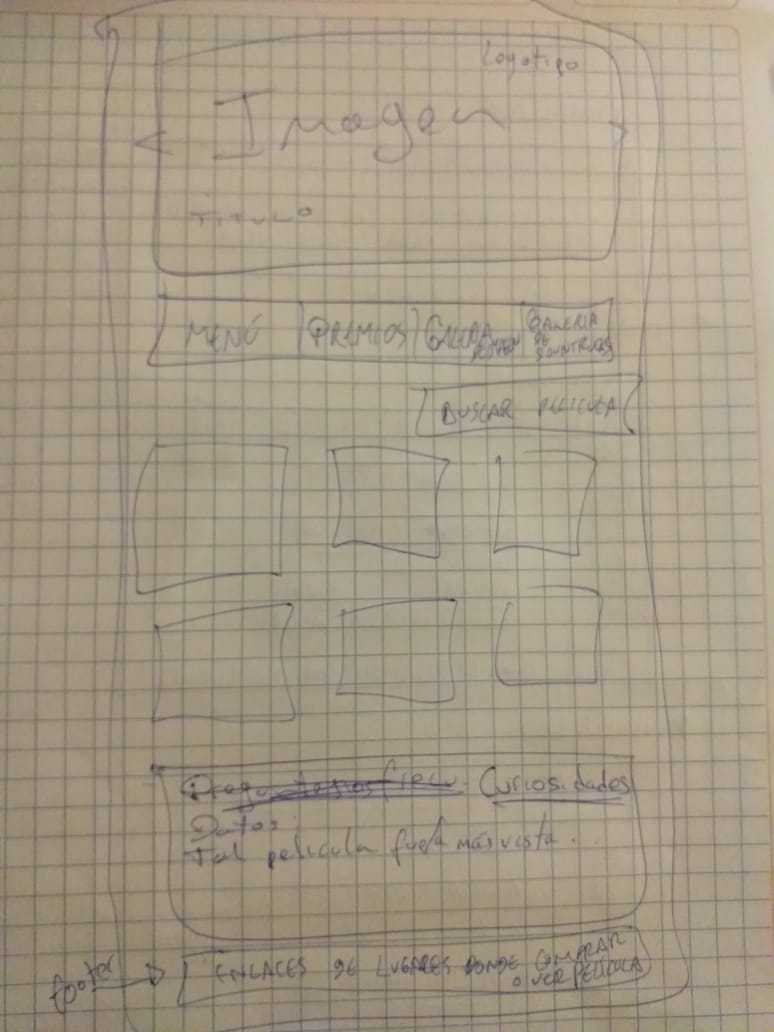 Logotipo
Imagen
TITULO
MENÚ
PREMIOS
GALERIA
GALERIA
DE
BUSCAR PELICULA
Curiosidades
Datos:
Tal pelicula fue la más vista.
footer
ENLACES DE LUGARES DONDE COMPRAR
O VER PELICULA